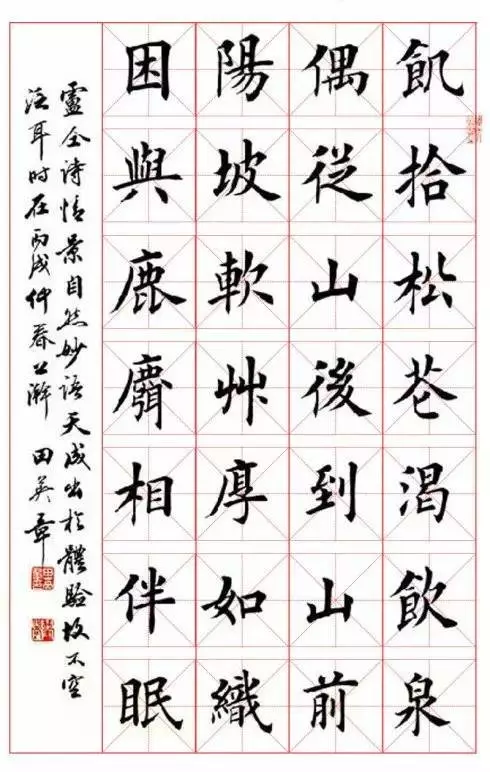 飢拾松花渴飲泉
偶從山後到山前
陽坡軟艸厚如織
困與鹿麛相伴眠
靈仝诗情景自然妙语天成出於體驗故不空
泛耳时在丙戌仲春上澣 田英章